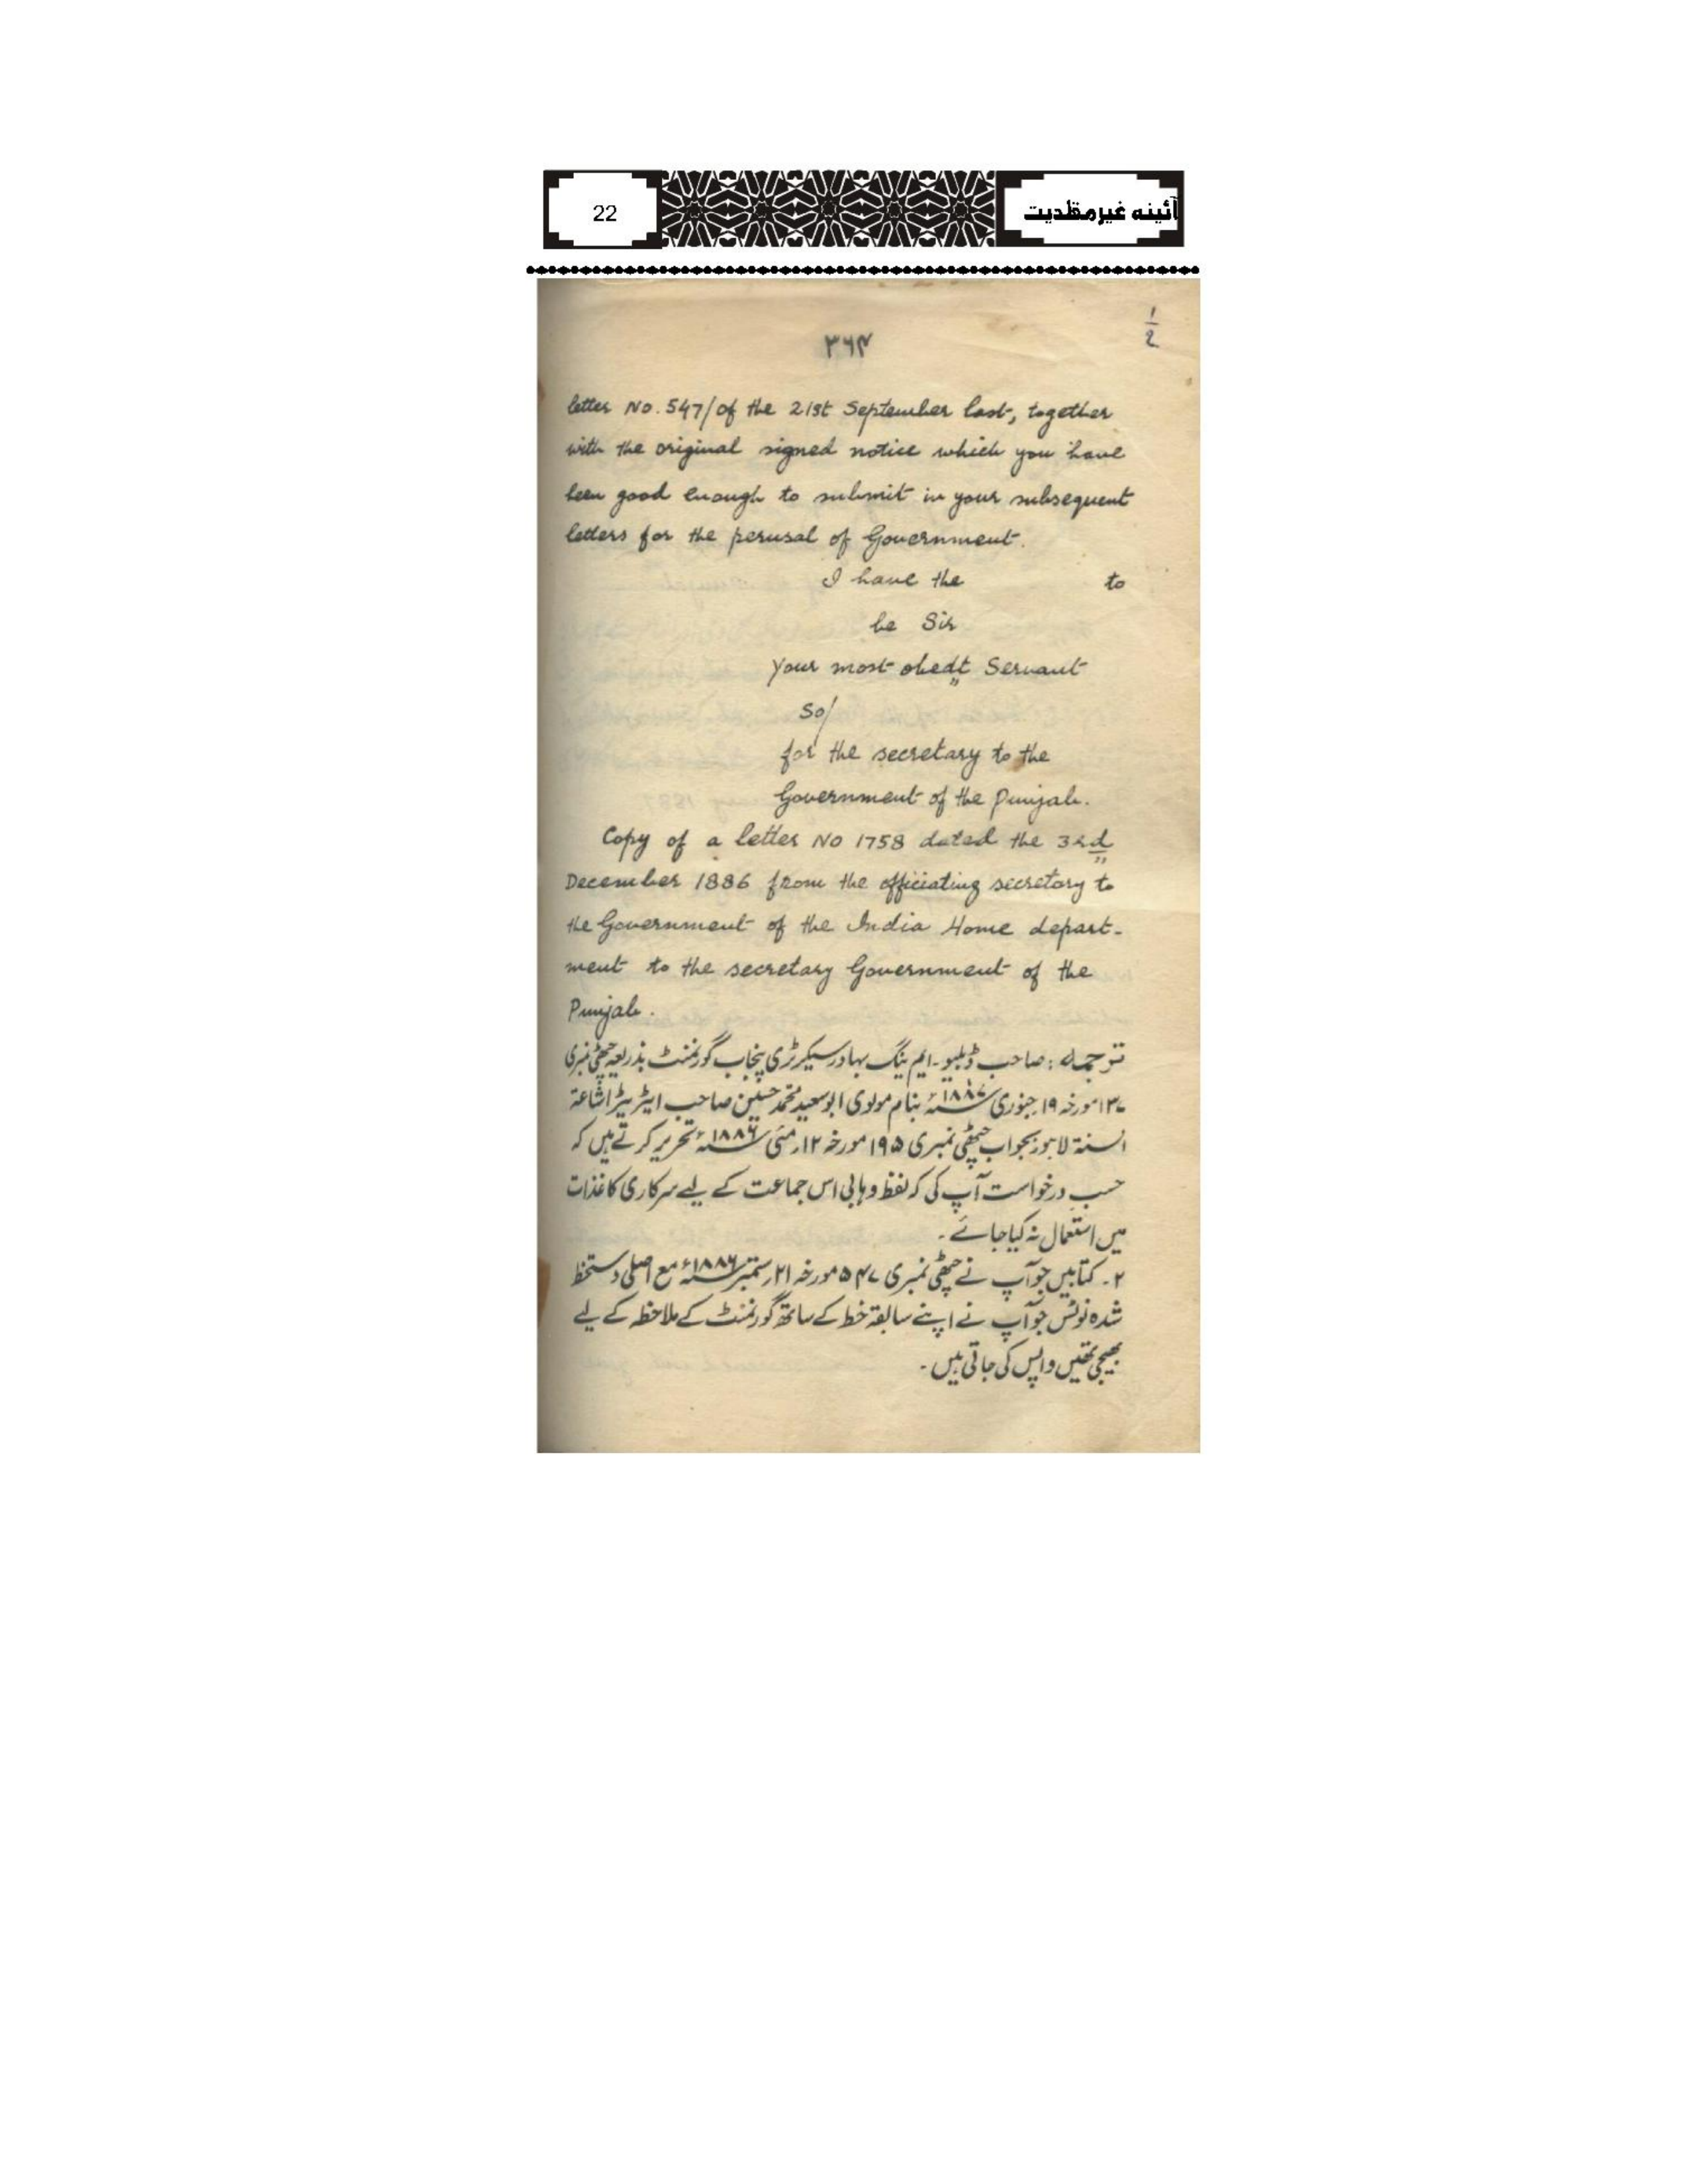 22
آئینہ غیر مقلدیت
۳۶۴
1/2
letter No. 547/of the 21st September last, together
with the original signed notice which you have
been good enough to submit in your subsequent
letters for the perusal of Government.
I have the to
be Sir
Your most obedt Servant
So/
for the secretary to the
Government of the Punjab.
Copy of a letter No 1758 dated the 3rd
December 1886 from the officiating secretary to
the Government of the India Home depart-
ment to the secretary Government of the
Punjab.
ترجمہ: صاحب ڈبلیو۔ ایم ینگ بہادر سیکرٹری پنجاب گورنمنٹ بذریعہ چٹھی نمبری
۱۳۷ مورخہ ۱۹ جنوری ۱۸۸۷ء بنام مولوی ابو سعید محمد حسین صاحب ایڈیٹر اشاعۃ
السنۃ لاہور بجواب چٹھی نمبری ۱۹۵ مورخہ ۱۲ مئی ۱۸۸۶ء تحریر کرتے ہیں کہ
حسب درخواست آپ کی کہ لفظ وہابی اس جماعت کے لیے سرکاری کاغذات
میں استعمال نہ کیا جائے۔
۲۔ کتابیں جو آپ نے چٹھی نمبری ۵۴۷ مورخہ ۲۱ ستمبر ۱۸۸۶ء مع اصلی دستخط
شدہ نوٹس جو آپ نے اپنے سابقہ خط کے ساتھ گورنمنٹ کے ملاحظہ کے لیے
بھیجی تھیں واپس کی جاتی ہیں۔